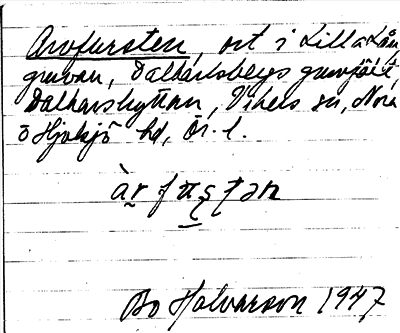 Arvfursten, ort i Lilla Lån-
gruvan, Dalkarlsbergs gruvfält,
Dalkarshyttan, Vikers sn, Nora
o Hjulsjö hd, Ör. l.
Bo Halvarson 1947